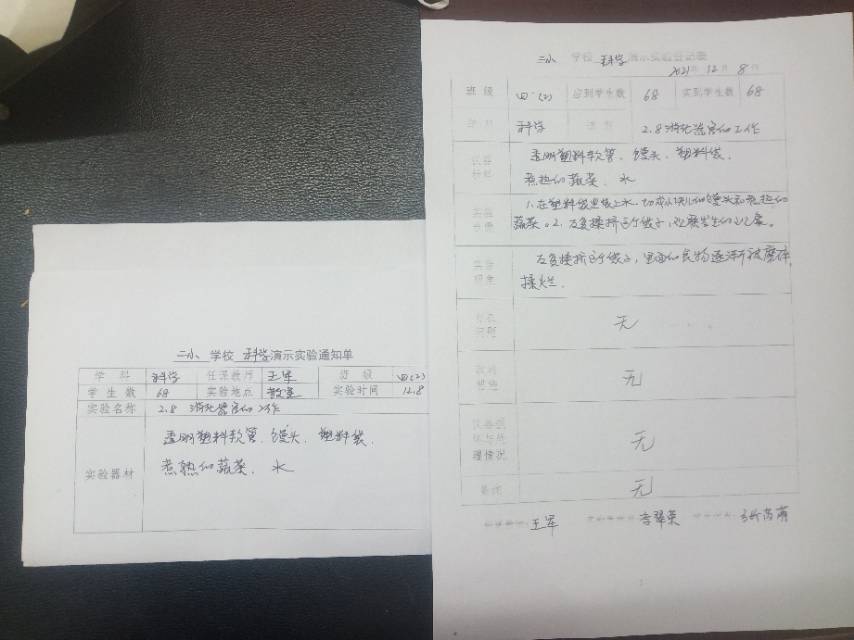 二小 学校 科学演示实验通知单
学 科 科学 任课教师 王军 班 级 四(2)
学 生 数 68 实验地点 教室 实验时间 12.8
实验名称 2.8 消化器官的工作
实验器材 透明塑料软管、馒头、塑料袋、
煮熟的蔬菜、水
二小 学校 科学演示实验登记表
2021年 12月 8日
班 级 四(2) 应到学生数 68 实到学生数 68
科学 2.8消化器官的工作
仪器 透明塑料软管、馒头、塑料袋、
煮熟的蔬菜、水
1.在塑料袋里装上水、切成小块儿的馒头和煮热的
蔬菜。2.反复揉挤这个袋子,观察发生的现象。
反复揉挤这个袋子,里面的食物逐渐被磨碎,
揉烂.
无
无
无
无
王军